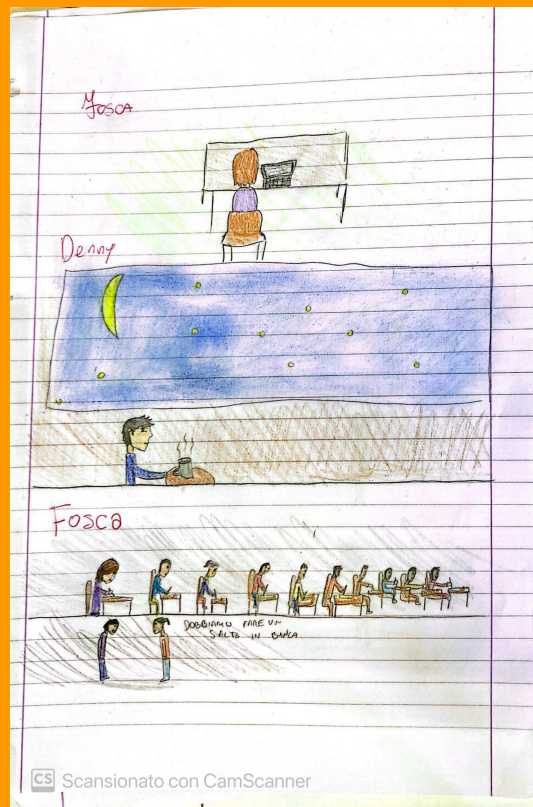 Fosca
Denny
Fosca
DOBBIAMO FARE UN
SALTO IN BANCA
CS Scansionato con CamScanner